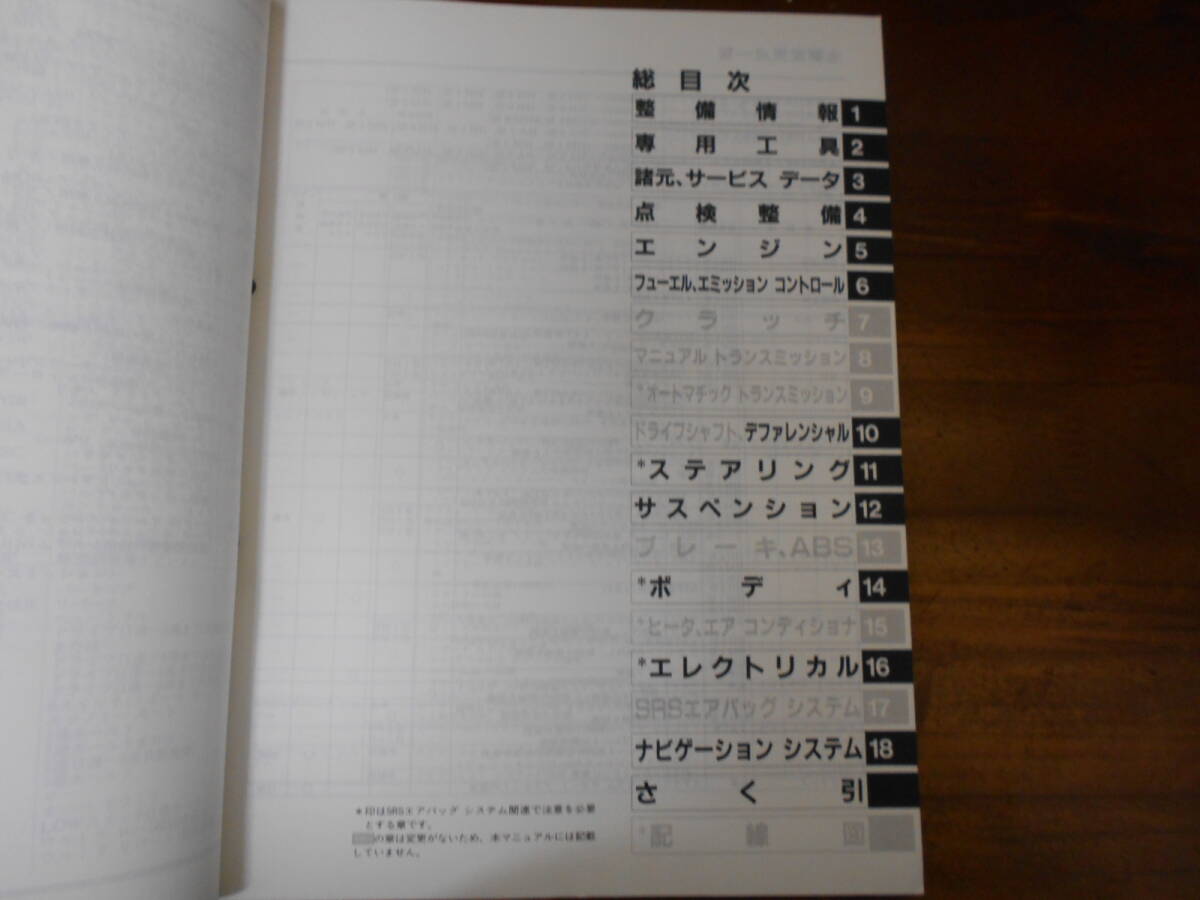 総目次
整備情報 1
専用工具 2
諸元、サービス データ 3
点検整備 4
エンジン 5
フューエル、エミッション コントロール 6
クラッチ 7
マニュアル トランスミッション 8
*オートマチック トランスミッション 9
ドライブシャフト、デファレンシャル 10
*ステアリング 11
サスペンション 12
ブレーキ、ABS 13
*ボディ 14
*ヒータ、エア コンディショナ 15
*エレクトリカル 16
SRSエアバッグ システム 17
ナビゲーション システム 18
さく引
*配線図
*印はSRSエアバッグ システム関連で注意を必要
とする章です。
の章は変更がないため、本マニュアルには記載
していません。